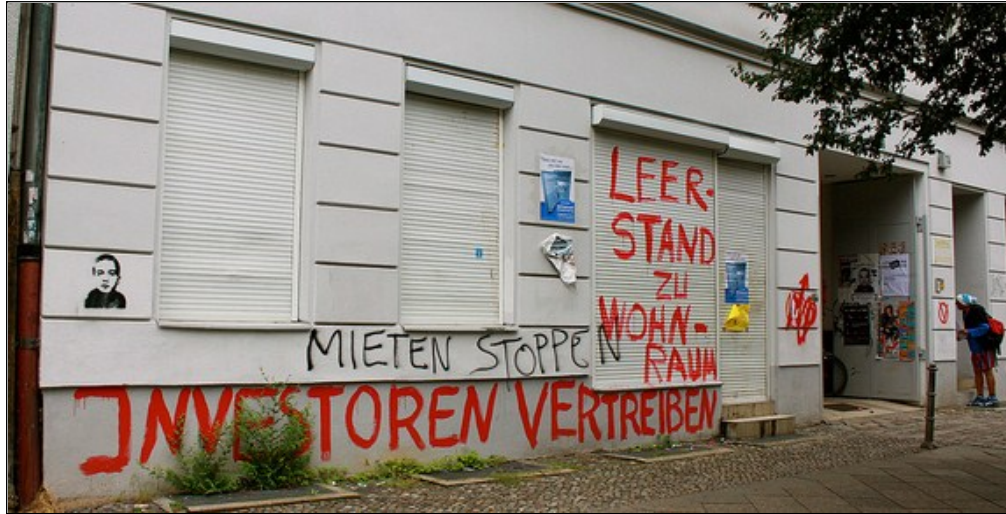 LEER-
STAND
ZU
WOHN-
RAUM
MIETEN STOPPEN
INVESTOREN VERTREIBEN